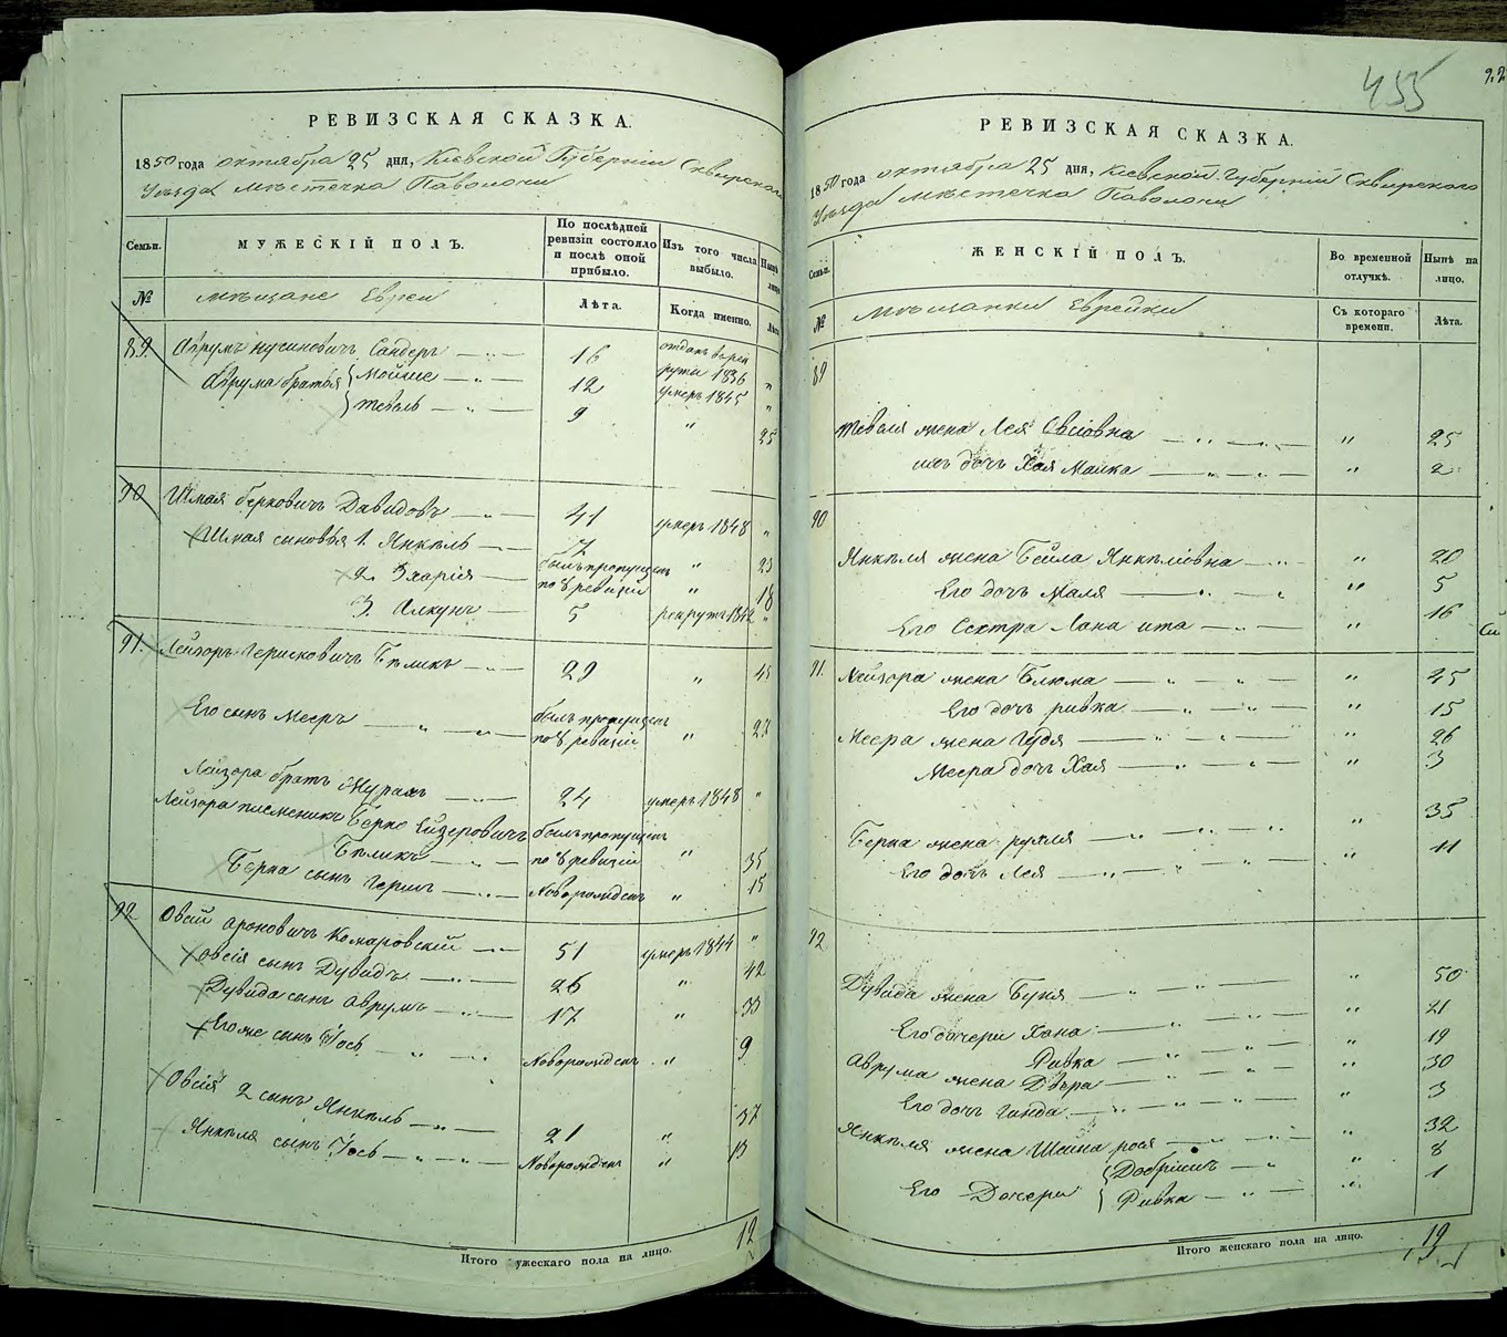 РЕВИЗСКАЯ СКАЗКА.
1850 года октября 25 дня, Кіевской Губерніи Сквирскаго
Уѣзда мѣстечка Паволочи
Семьи.
МУЖЕСКІЙ ПОЛЪ.
По послѣдней ревизіи состояло и послѣ оной прибыло.
Изъ того числа выбыло.
Нынѣ на лицо.
№
мѣщане Евреи
Лѣта.
Когда именно.
Лѣта.
89 Аврумъ Нусиновичъ Сандеръ 16 отданъ в рек
Аврума братья Мойше 12 рути 1836 "
умеръ 1845 "
Тевель 9 " 25
90 Шмая Берковичъ Давидовъ 41 умеръ 1848 "
Шмая сыновья 1. Янкель 7 " 23
2. Зхарія былъ пропущенъ по 8 ревизіи " 18
3. Алкунъ 5 рекрутъ 1842 "
91. Лейзоръ Герисковичъ Бѣликъ 29 " 45
Его сынъ Мееръ былъ пропущенъ по 8 ревизіи " 22
Лейзора братъ 24 умеръ 1848 "
Лейзора племеникъ Берко Ейзеровичъ былъ пропущенъ
Бѣликъ по 8 ревизіи " 35
Берка сынъ Гершъ Новорожденъ " 15
92 Овсій Ароновичъ Комаровскій 51 умеръ 1844 "
Овсія сынъ Дувидъ 26 " 42
Дувида сынъ Аврумъ 17 " 33
Его же сынъ Іось Новорожденъ " 9
Овсія 2 сынъ Янкель 21 " 37
Янкеля сынъ Іось Новорожденъ " 13
Итого мужескаго пола на лицо. 12
455
22
РЕВИЗСКАЯ СКАЗКА.
1850 года октября 25 дня, Кіевской Губерніи Сквирскаго
Уѣзда мѣстечка Паволочи
Семьи.
ЖЕНСКІЙ ПОЛЪ.
Во временной отлучкѣ.
Нынѣ на лицо.
№
Мѣщанки Еврейки
Съ котораго времени.
Лѣта.
89
Тевеля жена Лея Овсіовна " 25
ихъ дочь Хая Малка " 2
90
Янкеля жена Бейла Янкеліовна " 20
Его дочь Маля " 5
Его Сестра Хана ита " 16
91. Лейзора жена Блюма " 45
Его дочь ривка " 15
Меера жена Гудя " 26
Меера дочь Хая " 3
Берка жена рухля " 35
Его дочь Лея " 11
92
Дувида жена Буня " 50
Его дочери Хана " 21
Ривка " 19
Аврума жена Двера " 30
Его дочь Гинда " 3
Янкеля жена Шейна рося " 32
Его Дочери Добришъ " 8
Ривка " 1
Итого женскаго пола на лицо. 19